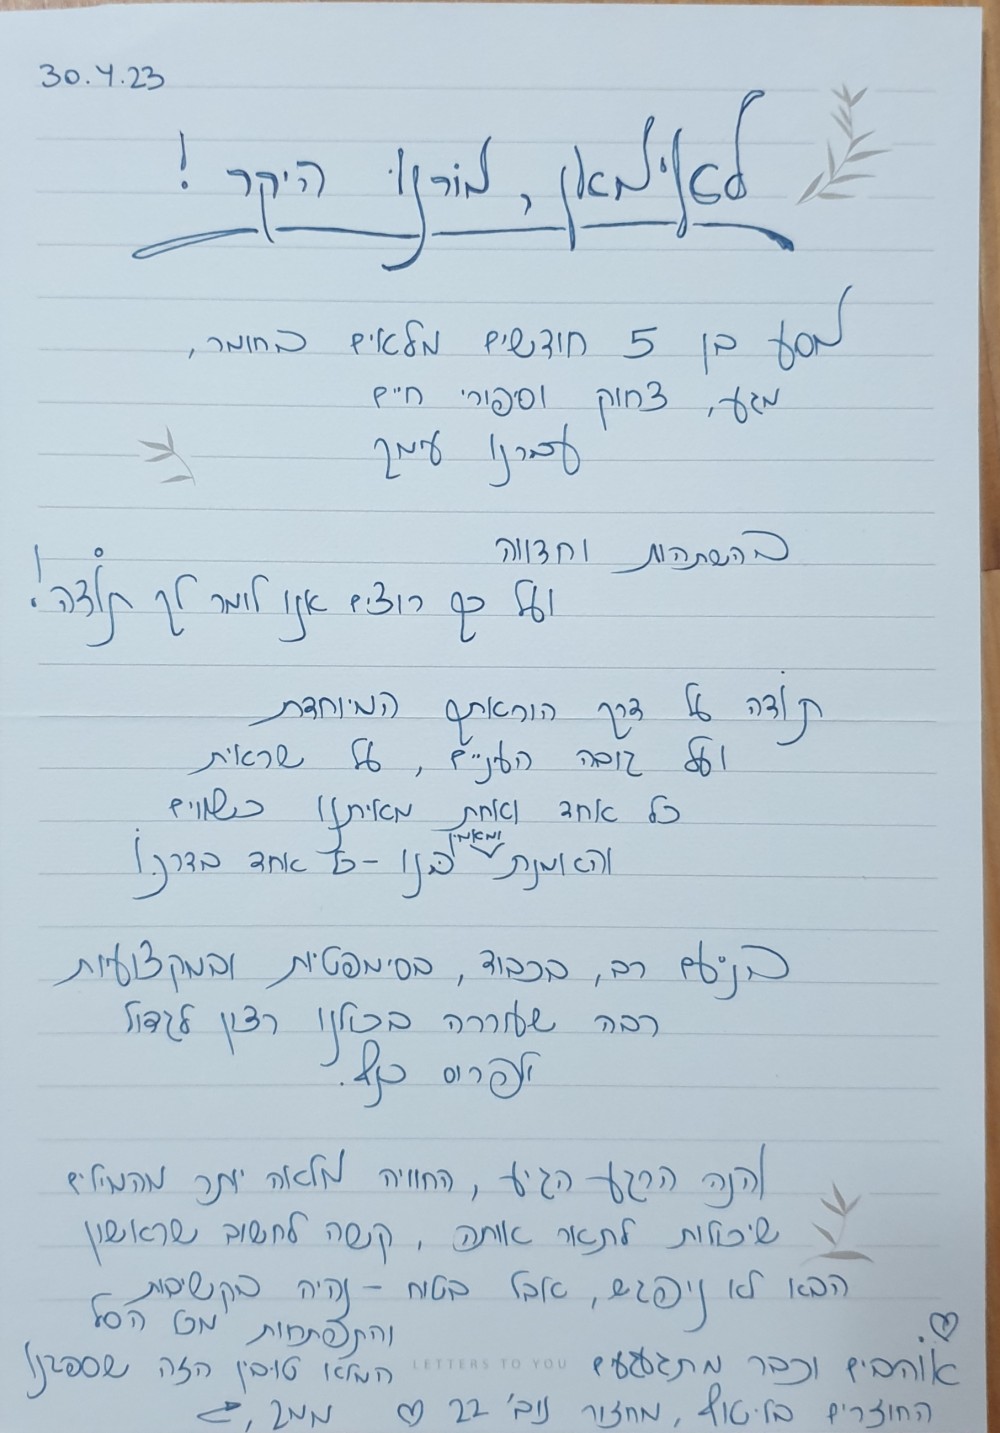 30.4.23
לאילמאן, מורנו היקר!
מסע בן 5 חודשים מלאים בחומר,
מגע, צחוק וסיפורי חיים
עברנו עימך
בהשתהות וחדווה
ועל כך רוצים אנו לומר לך תודה!
תודה על דרך הוראתך המיוחדת
ועל גובה העיניים, על שראית
כל אחד ואחת מאיתנו כשווים
והאמנת ומאמין בנו - כל אחד בדרכו
בנועם רב, בכבוד, בסימפטיות ובמקצועיות
רבה שעוררה בכולנו רצון לגדול
ולפרוס כנף.
והנה הרגע הגיע, החוויה מלאה יותר מהמילים
שיכולות לתאר אותה, קשה לחשוב שראשון
הבא לא ניפגש, אבל בטוח - נהיה בקשיבות
והתפתחות מט הסל
אוהבים וכבר מתגעגעים המלא טובין הזה שספגנו
LETTERS TO YOU
החוזרים בליטוף, מחזור נוב' 22 ♡ ממך,